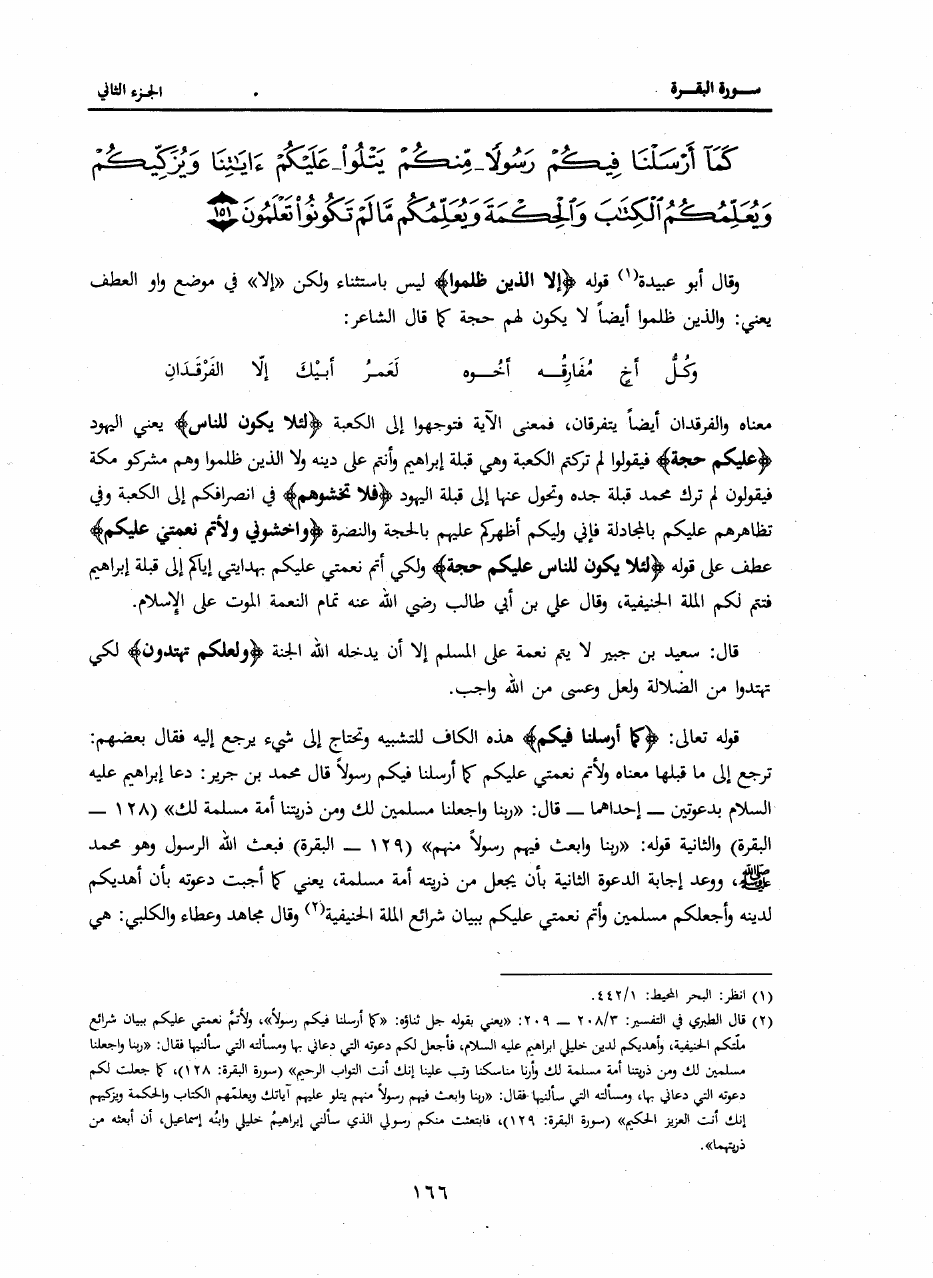 سورة البقرة الجزء الثاني
كَمَآ أَرْسَلْنَا فِيكُمْ رَسُولًا مِّنكُمْ يَتْلُوا۟ عَلَيْكُمْ ءَايَٰتِنَا وَيُزَكِّيكُمْ
وَيُعَلِّمُكُمُ ٱلْكِتَٰبَ وَٱلْحِكْمَةَ وَيُعَلِّمُكُم مَّا لَمْ تَكُونُوا۟ تَعْلَمُونَ ١٥١
وقال أبو عبيدة(١) قوله ﴿إلا الذين ظلموا﴾ ليس باستثناء ولكن «إلا» في موضع واو العطف
يعني: والذين ظلموا أيضاً لا يكون لهم حجة كما قال الشاعر:
وَكُلُّ أخٍ مُفَارِقُـه أخُـوه لَعَمـرُ أبيْكَ إلّا الفَرْقَدَانِ
معناه والفرقدان أيضاً يتفرقان، فمعنى الآية فتوجهوا إلى الكعبة ﴿لئلا يكون للناس﴾ يعني اليهود
﴿عليكم حجة﴾ فيقولوا لم تركتم الكعبة وهي قبلة إبراهيم وأنتم على دينه ولا الذين ظلموا وهم مشركو مكة
فيقولون لم ترك محمد قبلة جده وتحول عنها إلى قبلة اليهود ﴿فلا تخشوهم﴾ في انصرافكم إلى الكعبة وفي
تظاهرهم عليكم بالمجادلة فإني وليكم أظهركم عليهم بالحجة والنصرة ﴿واخشوني ولأتم نعمتي عليكم﴾
عطف على قوله ﴿لئلا يكون للناس عليكم حجة﴾ ولكي أتم نعمتي عليكم بهدايتي إياكم إلى قبلة إبراهيم
فتتم لكم الملة الحنيفية، وقال علي بن أبي طالب رضي الله عنه تمام النعمة الموت على الإسلام.
قال: سعيد بن جبير لا يتم نعمة على المسلم إلا أن يدخله الله الجنة ﴿ولعلكم تهتدون﴾ لكي
تهتدوا من الضلالة ولعل وعسى من الله واجب.
قوله تعالى: ﴿كما أرسلنا فيكم﴾ هذه الكاف للتشبيه وتحتاج إلى شيء يرجع إليه فقال بعضهم:
ترجع إلى ما قبلها معناه ولأتم نعمتي عليكم كما أرسلنا فيكم رسولاً قال محمد بن جرير: دعا إبراهيم عليه
السلام بدعوتين ــ إحداهما ــ قال: «ربنا واجعلنا مسلمين لك ومن ذريتنا أمة مسلمة لك» (١٢٨ ــ
البقرة) والثانية قوله: «ربنا وابعث فيهم رسولاً منهم» (١٢٩ ــ البقرة) فبعث الله الرسول وهو محمد
ﷺ، ووعد إجابة الدعوة الثانية بأن يجعل من ذريته أمة مسلمة، يعني كما أجبت دعوته بأن أهديكم
لدينه وأجعلكم مسلمين وأتم نعمتي عليكم ببيان شرائع الملة الحنيفية(٢) وقال مجاهد وعطاء والكلبي: هي
(١) انظر: البحر المحيط: ٤٤٢/١.
(٢) قال الطبري في التفسير: ٢٠٨/٣ ــ ٢٠٩: «يعني بقوله جل ثناؤه: «كما أرسلنا فيكم رسولاً»، ولأتمَّ نعمتي عليكم ببيان شرائع
ملّتكم الحنيفية، وأهديكم لدين خليلي ابراهيم عليه السلام، فأجعل لكم دعوته التي دعاني بها ومسألته التي سألنيها فقال: «ربنا واجعلنا
مسلمين لك ومن ذريتنا أمة مسلمة لك وأرنا مناسكنا وتب علينا إنك أنت التواب الرحيم» (سورة البقرة: ١٢٨)، كما جعلت لكم
دعوته التي دعاني بها، ومسألته التي سألنيها فقال: «ربنا وابعث فيهم رسولاً منهم يتلو عليهم آياتك ويعلمهم الكتاب والحكمة ويزكيهم
إنك أنت العزيز الحكيم» (سورة البقرة: ١٢٩)، فابتعثت منكم رسولي الذي سألني إبراهيمُ خليلي وابنُه إسماعيل، أن أبعثه من
ذريتهما».
١٦٦